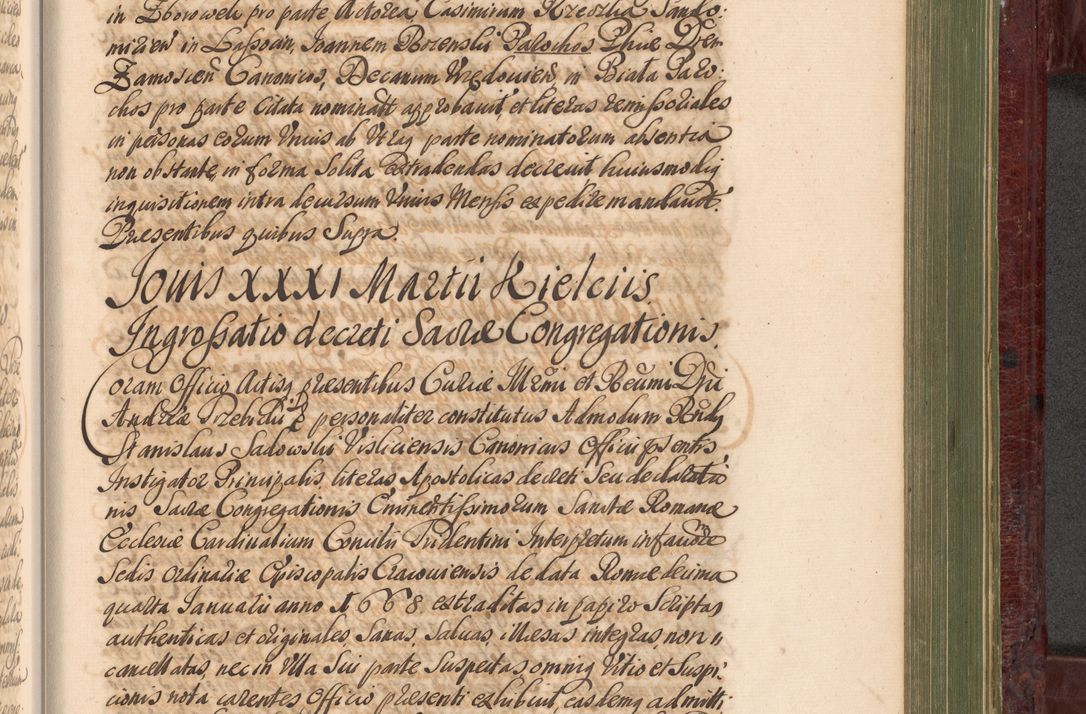 in Zborowek pro parte Actorea Casimirum Krezlik Sando-
mirien in Lassocin, Joannem Rozenski Parochos Phiae Drem
Zamoscien Canonicos, Decanum Urzedovien, in Biała Paro-
chos pro parte Citata nominatt approbavit, et literas remissoriales
in personas eorum Unius ab Utraq parte nominatorum absentia
non obstante, in forma Solita extradendas decrevit huiusmodiq
inquisitionem intra decursum Unius Mensis expedire mandavit.
Praesentibus quibus Supra.
Jovis XXXI Martii Kielciis.
Ingrossatio decreti Sacrae Congregationis.
Coram Officio Actisq praesentibus Curiae Illrmi et Reumi Dni
Andreae Trebicki Epi personaliter constitutus Admodum Rndus
Stanislaus Sadowski Visliciensis Canonicus Officii psentis
Instigator Principalis, literas Apostolicas decreti Seu declaratio
nis Sacrae Congregationis Eminentissimorum Sanctae Romanae
Ecclesiae Cardinalium Concilii Tridentini Interpretum in favorem
Sedis ordinariae Episcopalis Cracoviensis de data Romae decima
quarta Januarii anno 1668 extraditas in papiro Scriptas
authenticas et originales Sanas Salvas, illaesas integras, non
cancellatas, nec in Ulla Sui parte Suspectas omniq Vitio et Suspi-
cionis nota carentes Officio praesenti exhibuit, easdemq admitti